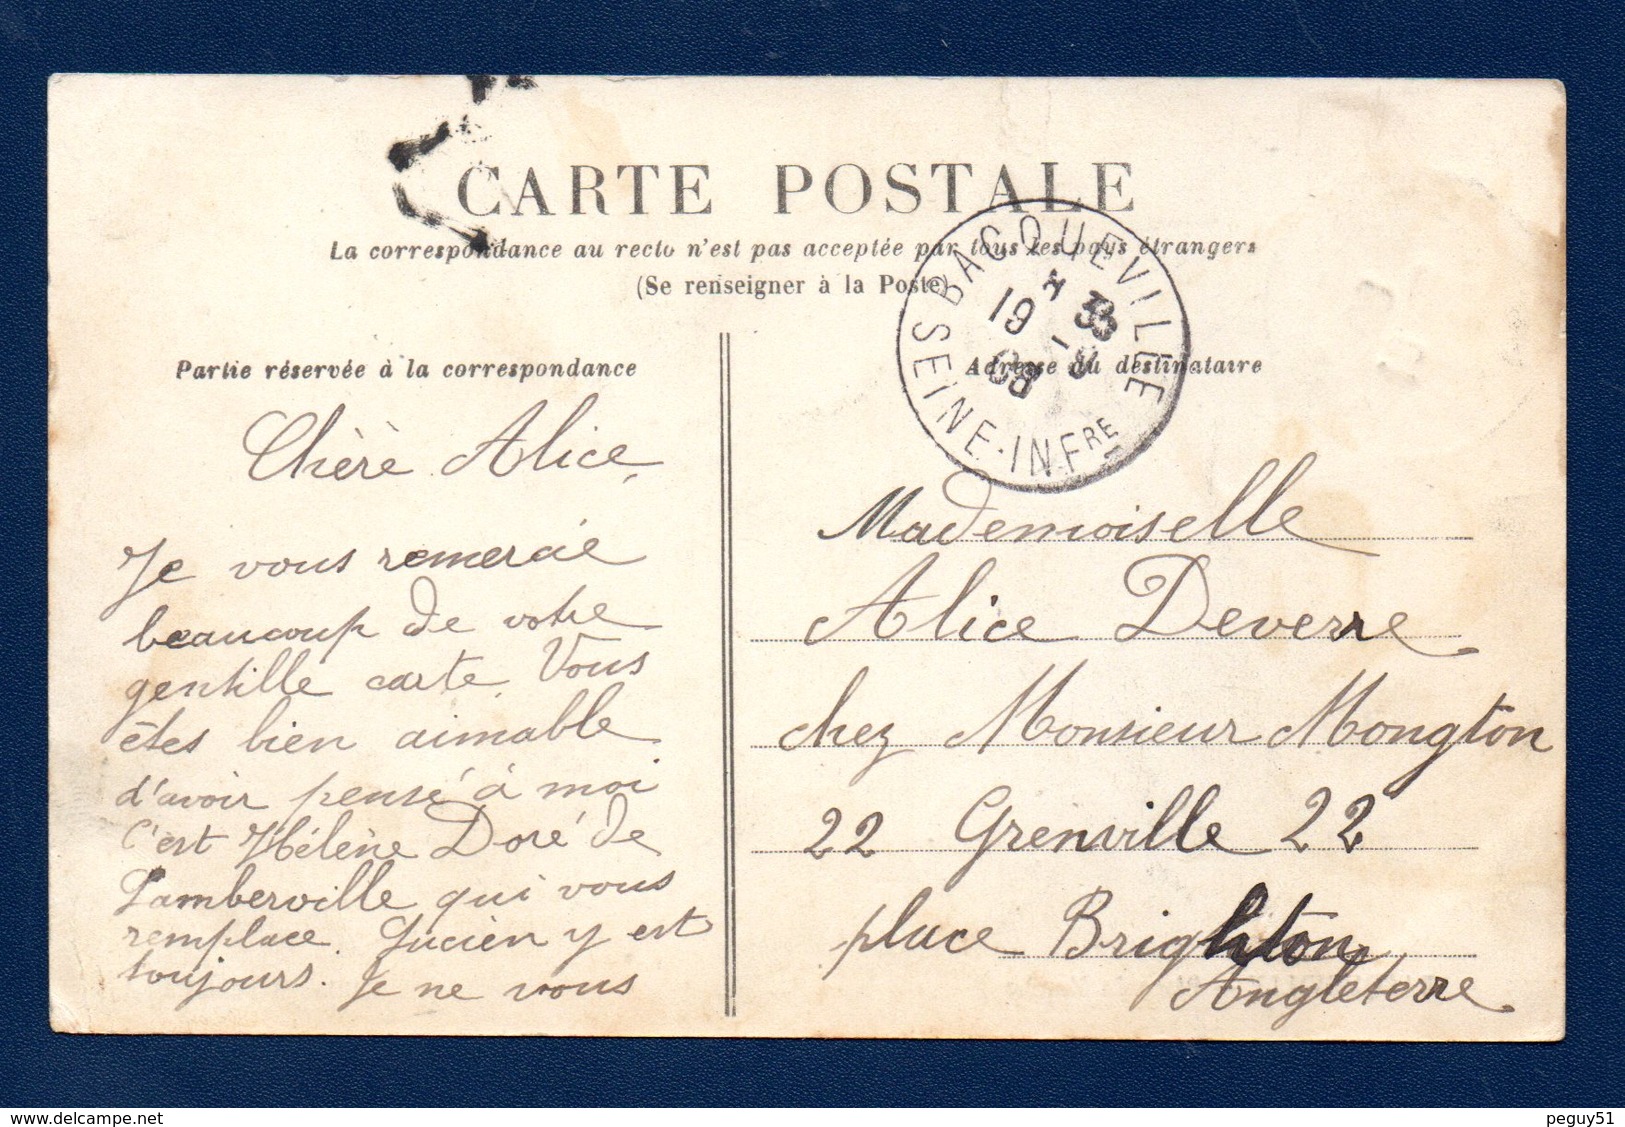 CARTE POSTALE
La correspondance au recto n'est pas acceptée par tous les pays étrangers
(Se renseigner à la Poste)
BACQUEVILLE
19
08
SEINE-INFRE
Partie réservée à la correspondance
Adresse du destinataire
Chèrè Alice,
Je vous remercie
beaucoup de votre
gentille carte. Vous
êtes bien aimable
d'avoir pensé à moi
C'est Hélène Doré de
Lamberville qui vous
remplace. Lucien y est
toujours. Je ne vous
Mademoiselle
Alice Deverre
chez Monsieur Mongton
22 Grenville 22
place Brighton
Angleterre
peguy51